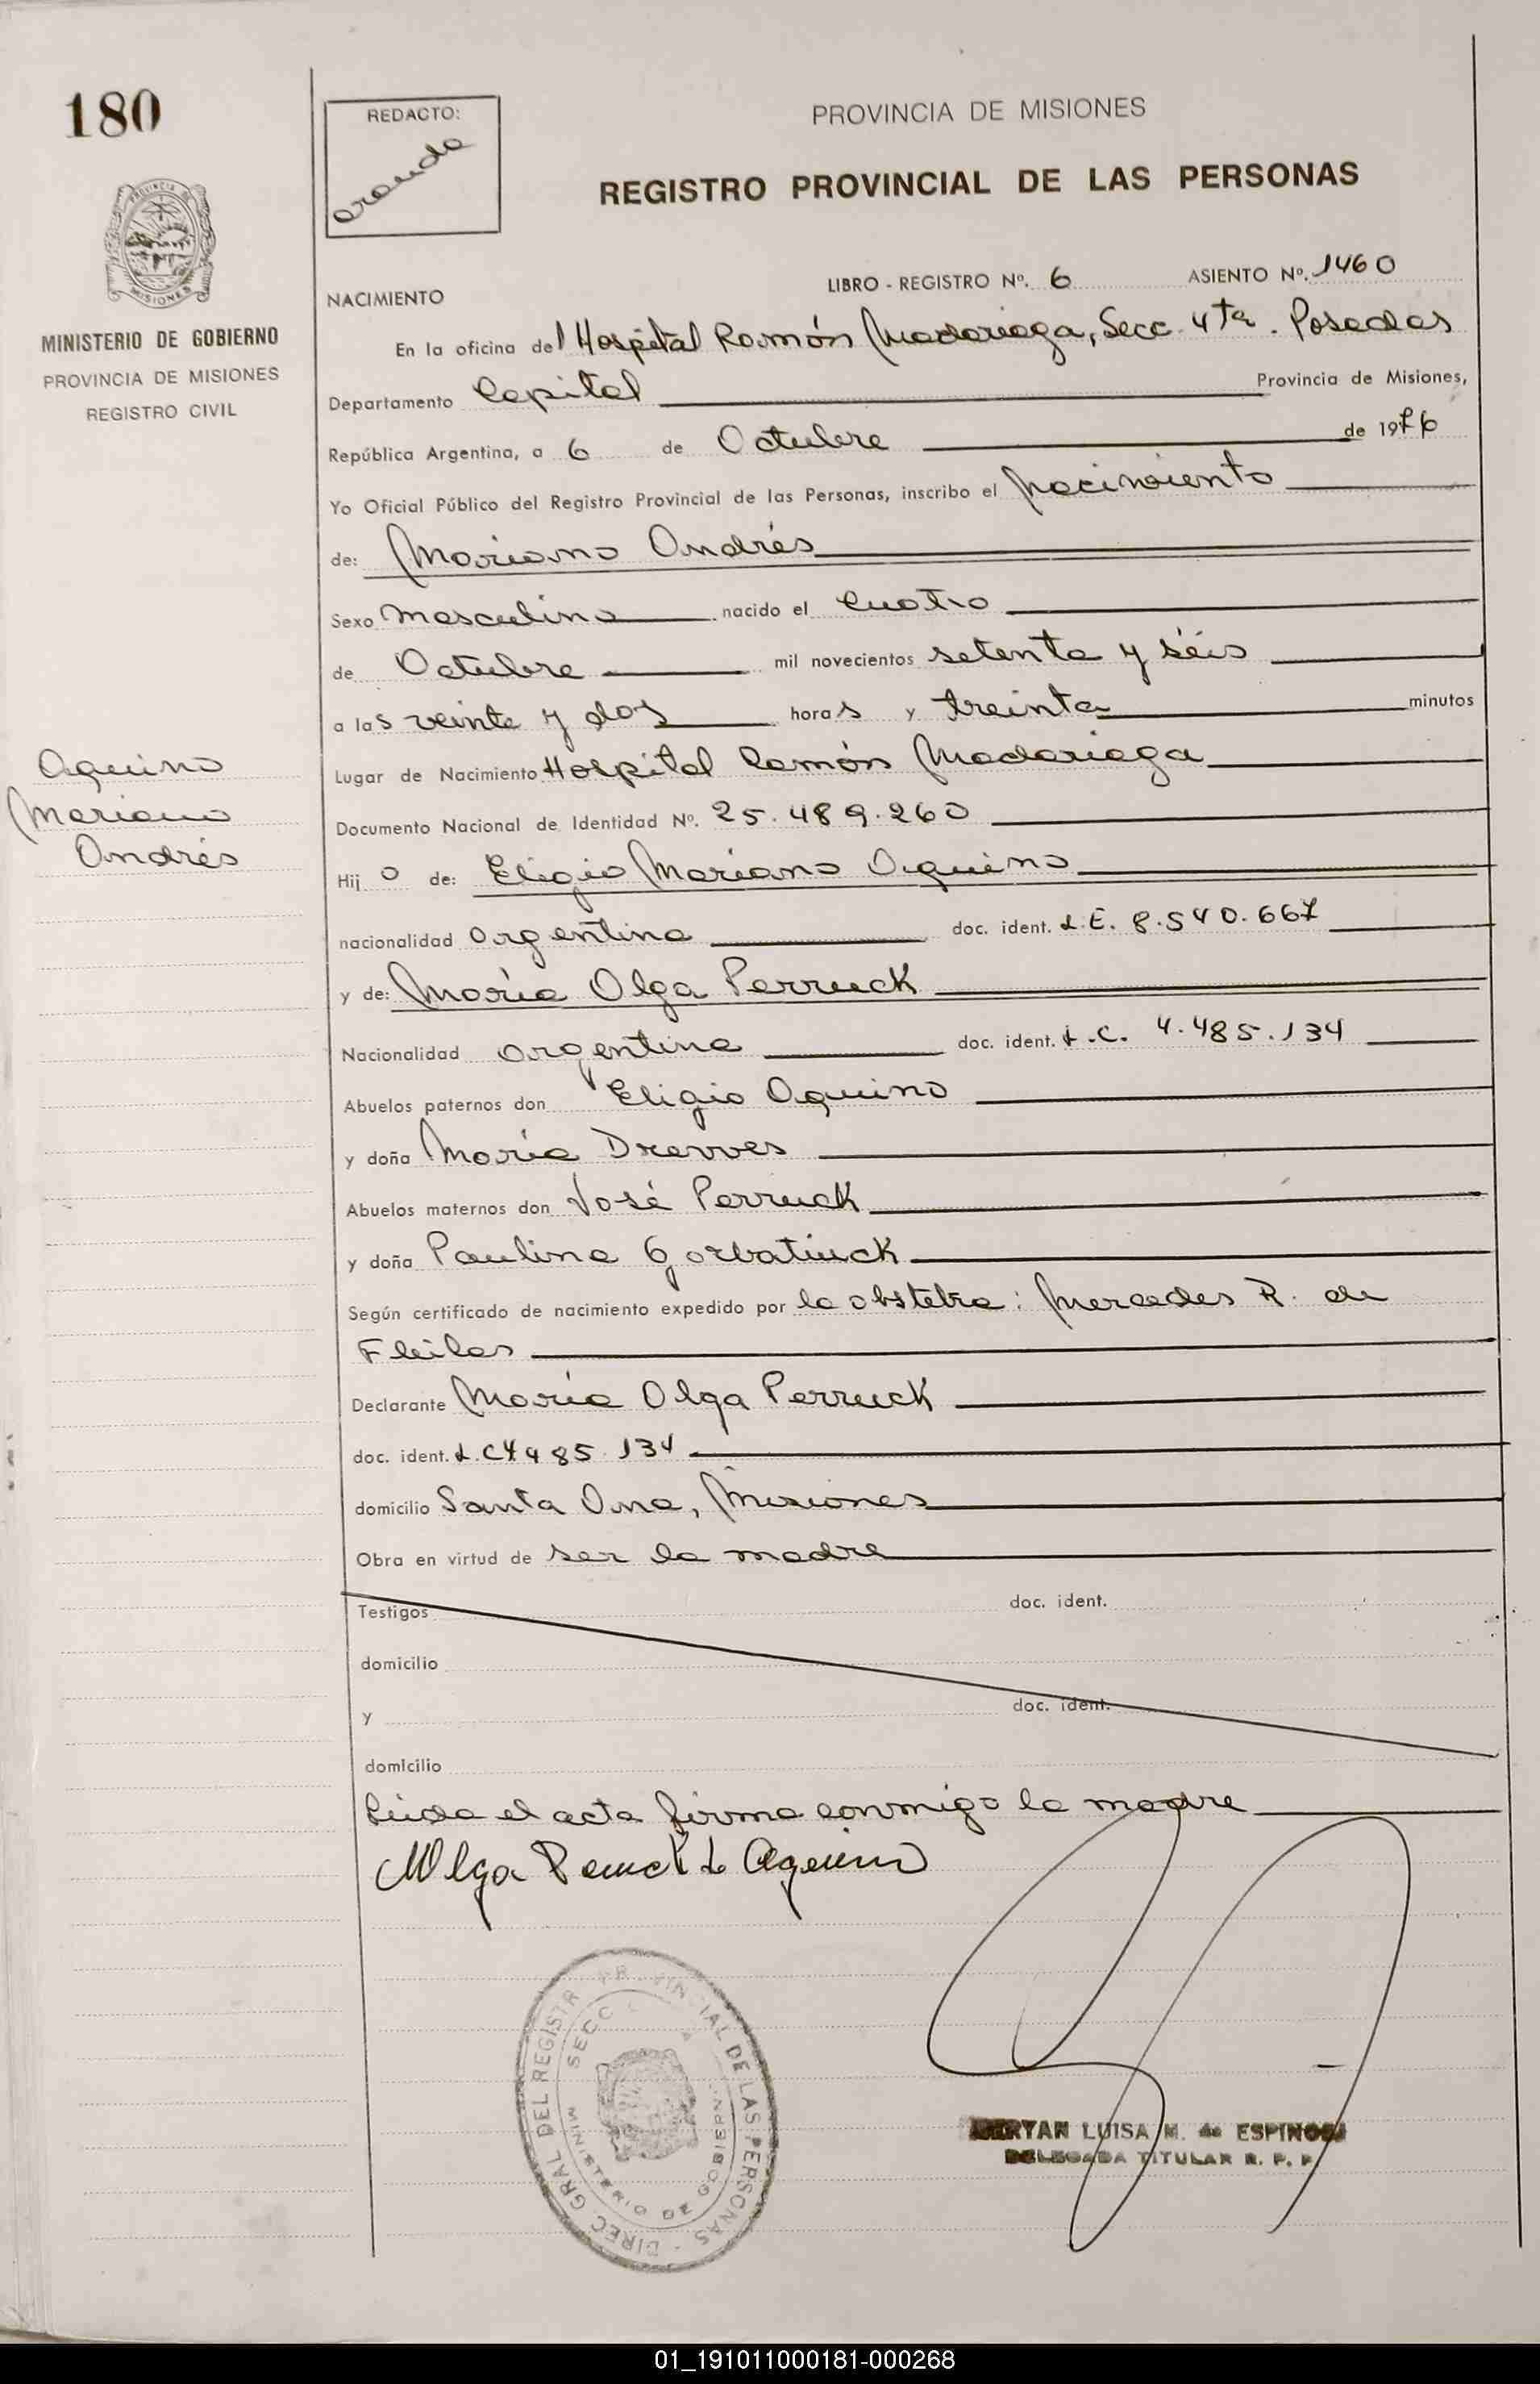 180
REDACTO:
PROVINCIA DE MISIONES
REGISTRO PROVINCIAL DE LAS PERSONAS
MISIONES
MINISTERIO DE GOBIERNO
PROVINCIA DE MISIONES
REGISTRO CIVIL
NACIMIENTO
LIBRO - REGISTRO Nº. 6 ASIENTO Nº. 1460
En la oficina del Hospital Ramón Madariaga, Secc. 4ta. Posadas
Departamento Capital Provincia de Misiones,
República Argentina, a 6 de Octubre de 1976
Yo Oficial Público del Registro Provincial de las Personas, inscribo el nacimiento
de: Mariano Andrés
Sexo masculino nacido el cuatro
de Octubre mil novecientos setenta y séis
a las veinte y dos horas y treinta minutos
Lugar de Nacimiento Hospital Ramón Madariaga
Aquino
Mariano
Andrés
Documento Nacional de Identidad Nº. 25.489.260
Hij o de: Eligio Mariano Aquino
nacionalidad argentina doc. ident. L.E. 8.540.667
y de: María Olga Perruck
Nacionalidad argentina doc. ident. L.C. 4.485.134
Abuelos paternos don Eligio Aquino
y doña María Drewes
Abuelos maternos don José Perruck
y doña Paulina Gorbatiuck
Según certificado de nacimiento expedido por la obstetra: Mercedes R. de
Fleitas
Declarante María Olga Perruck
doc. ident. L.C 4 485 134
domicilio Santa Ana, Misiones
Obra en virtud de ser la madre
Testigos doc. ident.
domicilio
y doc. ident.
domicilio
Leída el acta firma conmigo la madre
MOlga Perruck de Aquino
DIREC. GRAL DEL REGISTR PR VINCIAL DE LAS PERSONAS
SECC
MINISTERIO DE GOBIERN
LUISA M. de ESPINOSA
DELEGADA TITULAR R. P. P.
01_191011000181-000268